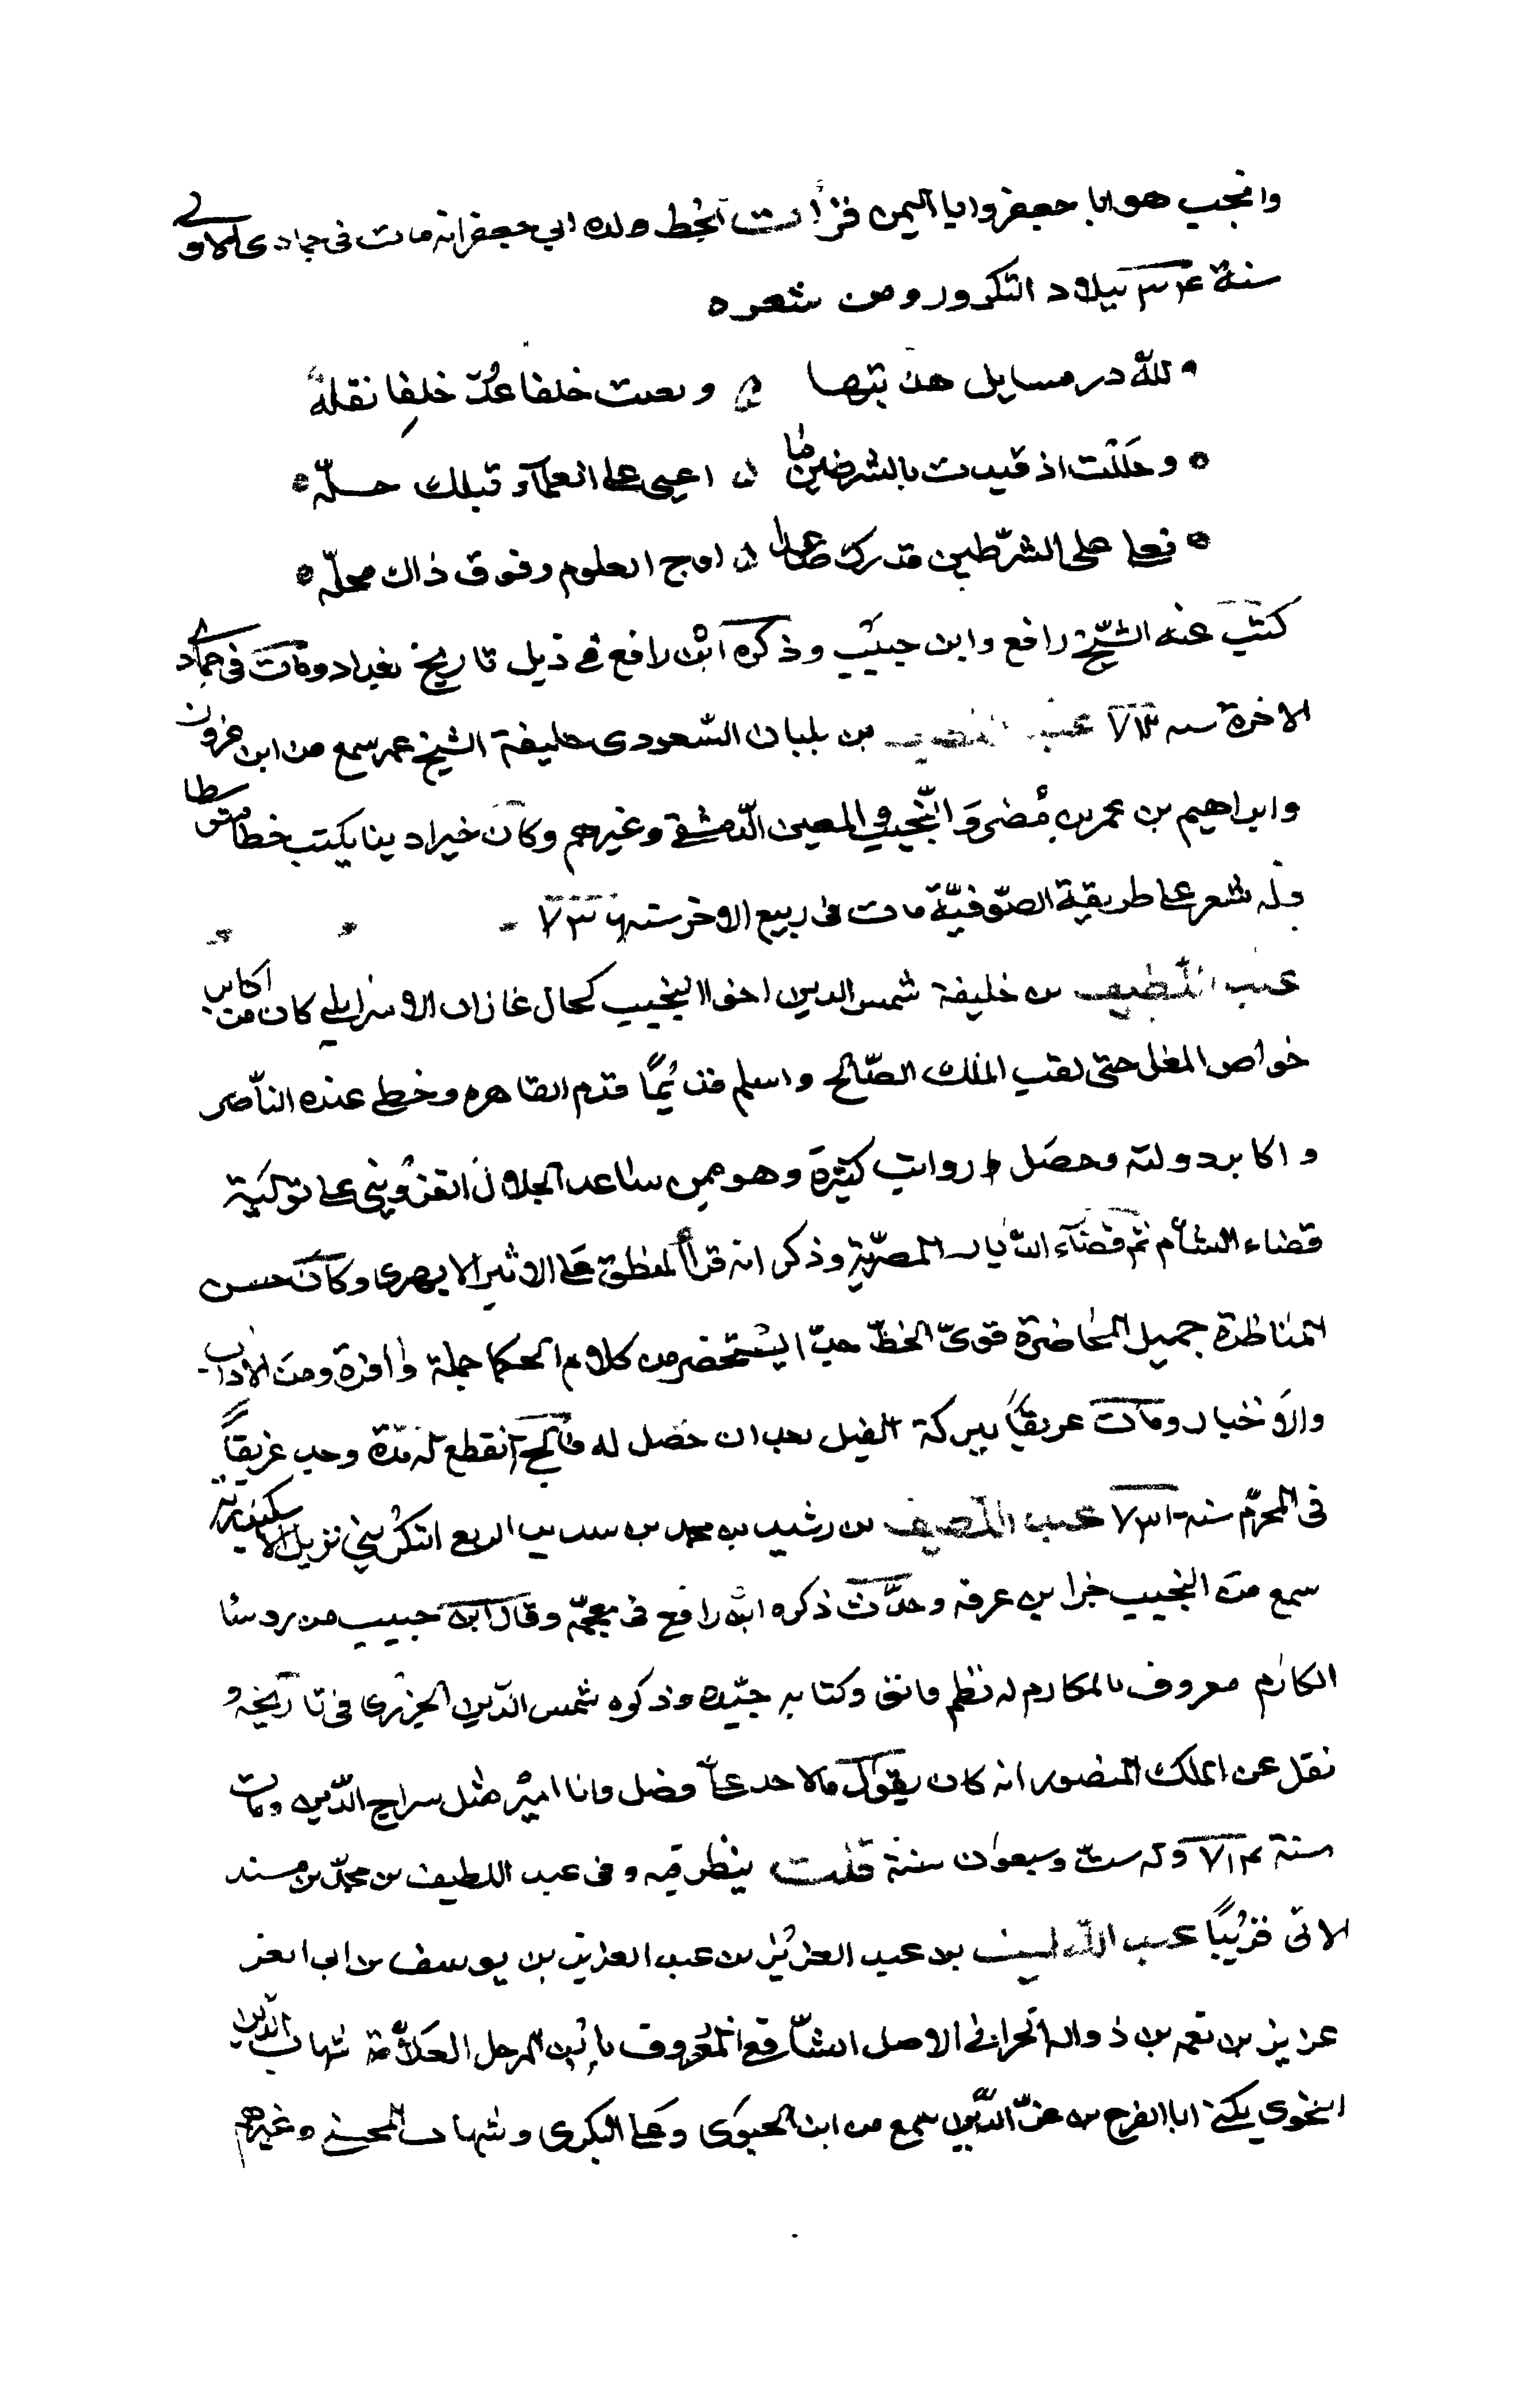 وانجب هو ابا جعفر وابا اليمن فقرأت بخط ولده ابي جعفر انه مات في جمادى الاولى
سنة ٧٣٤ ببلاد التكرور ومن شعره
لله در مسايل هذبتها ونفيت خلفا عد خلفا نقله
وحللت اذ قيدت بالشرطين ما اعيى على العلماء قبلك حله
فعلا على الشرطين قدرك صاعدا اوج العلوم وفوق ذاك محله
كتب عنه الشيخ رافع وابن حبيب وذكره ابن رافع في ذيل تاريخ بغداد ومات في جمادى
الاخرة سنة عبد اللطيف بن بلبان السعودي خليفة الشيخ عمر سمع من ابن عزون
وابراهيم بن عمر بن مضى والنجيب والمعين الدمشقي وغيرهم وكان خيرا دينا يكتب خطا متوسطا
وله شعر على طريقة الصوفية مات في ربيع الاخر سنة ٧٣٦
عبد اللطيف بن خليفة شمس الدين اخو النجيب كحال غازان الاسرايلي كان من اكابر
خواص المغل حتى لقب الملك الصالح واسلم قديما قدم القاهره وحظي عنده الناصر
واكابر دولته وحصل ثروات كثيرة وهو ممن ساعد الجلال القزويني على تولية
قضاء الشام ثم قضاء الديار المصرية وذكر انه قرأ المنطق على الاثير الابهري وكان حسن
المناظرة جميل المحاضرة قوي الخط جدا يستحضر من كلام الحكما جملة وافرة ومن الاداب
والاخبار ومات غريقا ببركة الفيل بعد ان حصل له فالج انقطع له مدة وجد غريقا
في المحرم سنة ٧٣١ عبد اللطيف بن رشيد بن محمد بن سديد الربعي التكريتي نزيل الاسكندرية
سمع من النجيب جزا بن عرفه وحدث ذكره ابن رافع في معجمه وقال ابن حبيب من روسا
الكارم معروف بالمكارم له نظم فائق وكتابه جيده وذكره شمس الدين الجزري في تاريخه و
نقل عن الملك المنصور انه كان يقول ما لاحد علي فضل وانا امير مثل سراج الدين ومات
سنة ٧١٤ وله ست وسبعون سنة قلت ينظر فيه وفي عبد اللطيف بن محمد بن مسند
الاتي قريبا عبد اللطيف بن عبد العزيز بن عبد العزيز بن يوسف بن ابي العز
عزيز بن نعمه بن ذواله الحراني الاصل الشافعي المعروف بابن المرحل العلامة شهاب الدين
النحوي يكنى ابا الفرج بن عز الدين سمع من ابن الحبوي وعلي البكري وشهاب المحسني وغيرهم